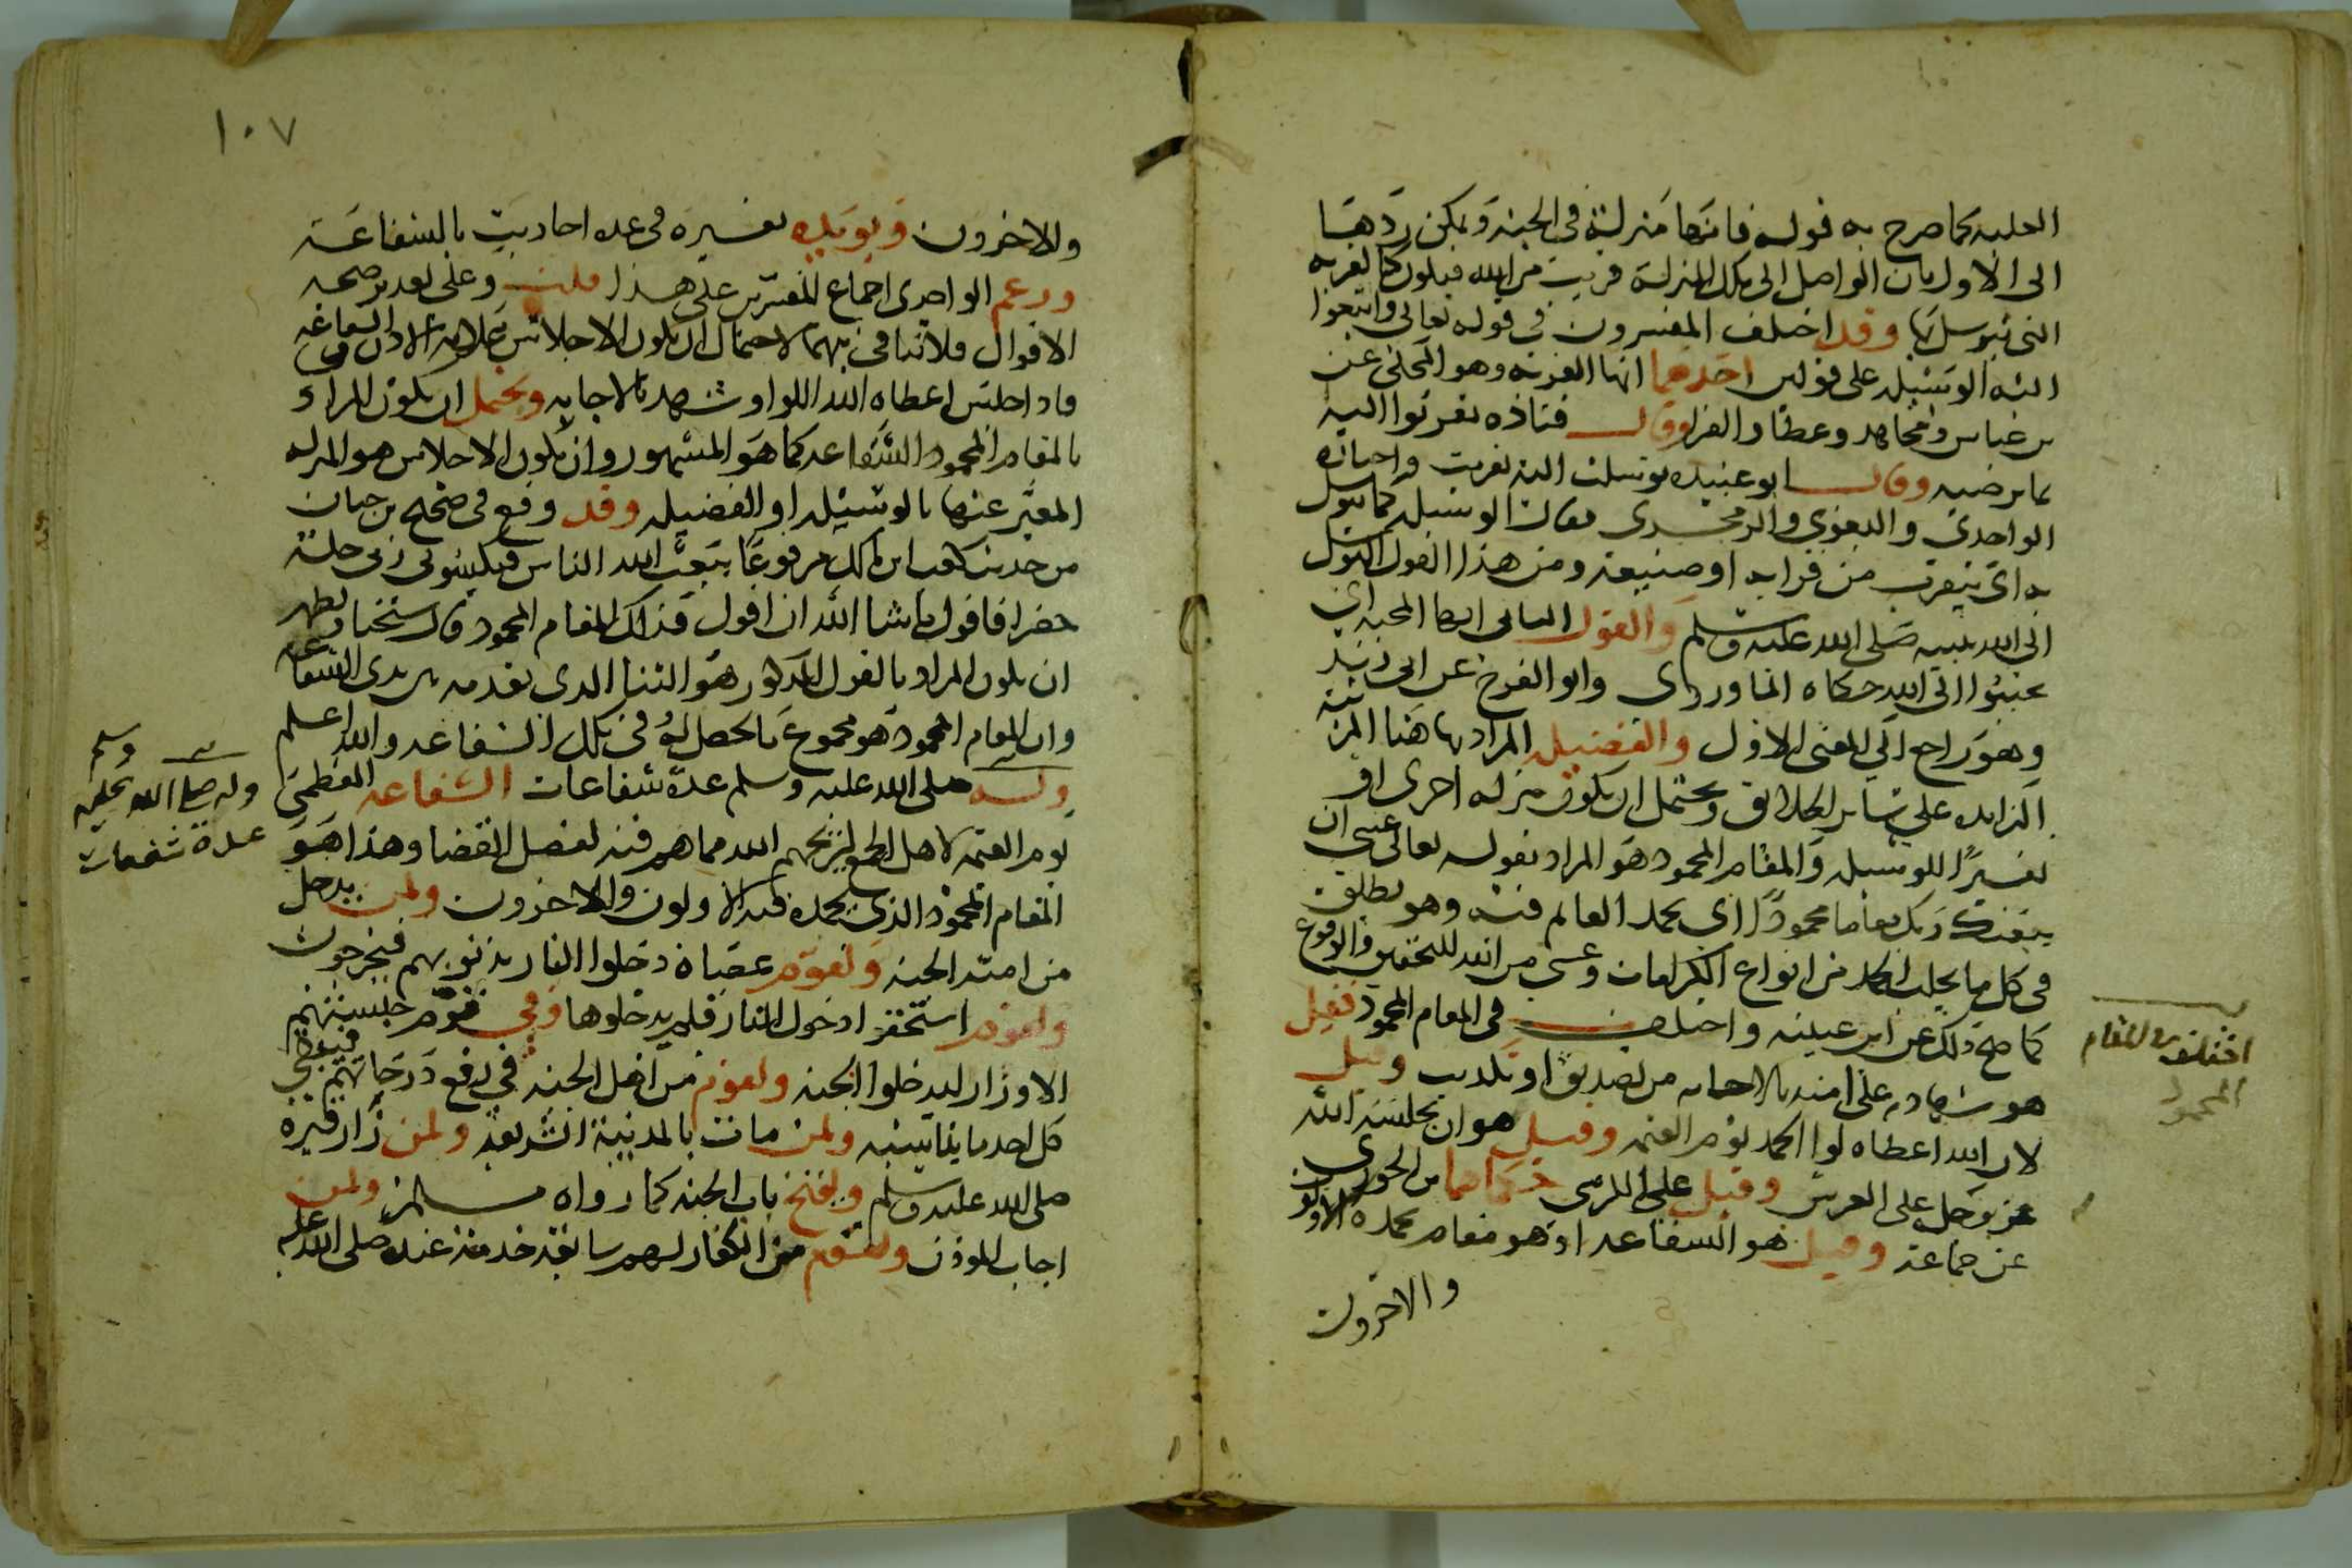 العلية كما صرح به قوله فانها منزلة في الجنة ويمكن ردها
الى الاول بان الواصل الى تلك المنزلة قريب من الله فيكون كالقربه
التي يتوسل بها وقد اختلف المفسرون في قوله تعالى وابتغوا
اليه الوسيلة على قولين احدهما انها القربه وهو المحكي عن
بن عباس ومجاهد وعطا والفرا وقال قتاده تقربوا اليه
بما يرضيه وقال ابو عبيده توسلت اليه تقربت واختاره
الواحدي والبغوي والزمخشري فقال الوسيلة كما يتوسل
به اي يتقرب من قرابه او صنيعه ومن هذا القول التوسل
الى الله بنبيه صلى الله عليه وسلم والقول الثاني انها المحبه اي
تحببوا الى الله حكاه الماوردي وابو الفرج عن ابي زيد
وهو راجع الى المعنى الاول والفضيله المراد بها هنا المرتبة
الزايده على ساير الخلايق ويحتمل ان يكون منزله اخرى او
تفسيرًا للوسيله والمقام المحمود هو المراد بقوله تعالى عسى ان
يبعثك ربك مقاما محمودًا اي يحمد القائم فيه وهو يطلق
في كل ما يجلب الحمد من انواع الكرامات وعسى من الله للتحقيق والوقوع
كما صح ذلك عن ابن عيينه واختلف في المقام المحمود فقيل
هو شهادته على امته بالاجابه من تصديق او تكذيب وقيل
لان الله اعطاه لوا الحمد يوم القيمه وقيل هو ان يجلسه الله
عز وجل على العرش وقيل على الكرسي حكاهما بن الجوزي
عن جماعة وقيل هو الشفاعه اذ هو مقام يحمده الاولون
والاخرون
اختلف في المقام
المحمود
١٠٧
والاخرون ويويده تفسيره في عده احاديث بالشفاعة
وزعم الواحدي اجماع المفسرين على هذا قلت وعلى تقدير صحه
الاقوال فلا تنافي بينهما لاحتمال ان يكون الاجلاس علامه الاذن في الشفاعه
فاذا جلس اعطاه الله اللوا وشهد بالاجابه ويحتمل ان يكون المراد
بالمقام المحمود الشفاعه كما هو المشهور وان يكون الاجلاس هو المنزله
المعبر عنها بالوسيله او الفضيله وقد وقع في صحيح بن حبان
من حديث كعب ابن مالك مرفوعًا يبعث الله الناس فيكسوني ربي حلة
خضرا فاقول ما شا الله ان اقول فذلك المقام المحمود قال شيخنا ويظهر
ان يكون المراد بالقول المذكور هو الثنا الذي يقدمه بين يدي الشفاعه
وان المقام المحمود هو مجموع ما يحصل له في تلك الشفاعه والله اعلم
وله صلى الله عليه وسلم عدة شفاعات الشفاعه العظمى
يوم القيمه لاهل الجمع ليريحهم الله مما هم فيه لفصل القضا وهذا هو
المقام المحمود الذي يحمده فيه الاولون والاخرون ولمن يدخل
من امته الجنه ولقوم عصاة دخلوا النار بذنوبهم فيخرجون
ولقوم استحقوا دخول النار فلم يدخلوها وفي قوم حبستهم
الاوزار ليدخلوا الجنه ولقوم من اهل الجنه في رفع درجاتهم فيعطي
كل احد ما يناسبه ولمن مات بالمدينة الشريفه ولمن زار قبره
صلى الله عليه وسلم ولفتح باب الجنه كما رواه مسلم ولمن
اجاب الموذن ولقوم من الكفار لهم سابقة خدمة عنده صلى الله عليه
وله صلى الله عليه وسلم
عدة شفعات